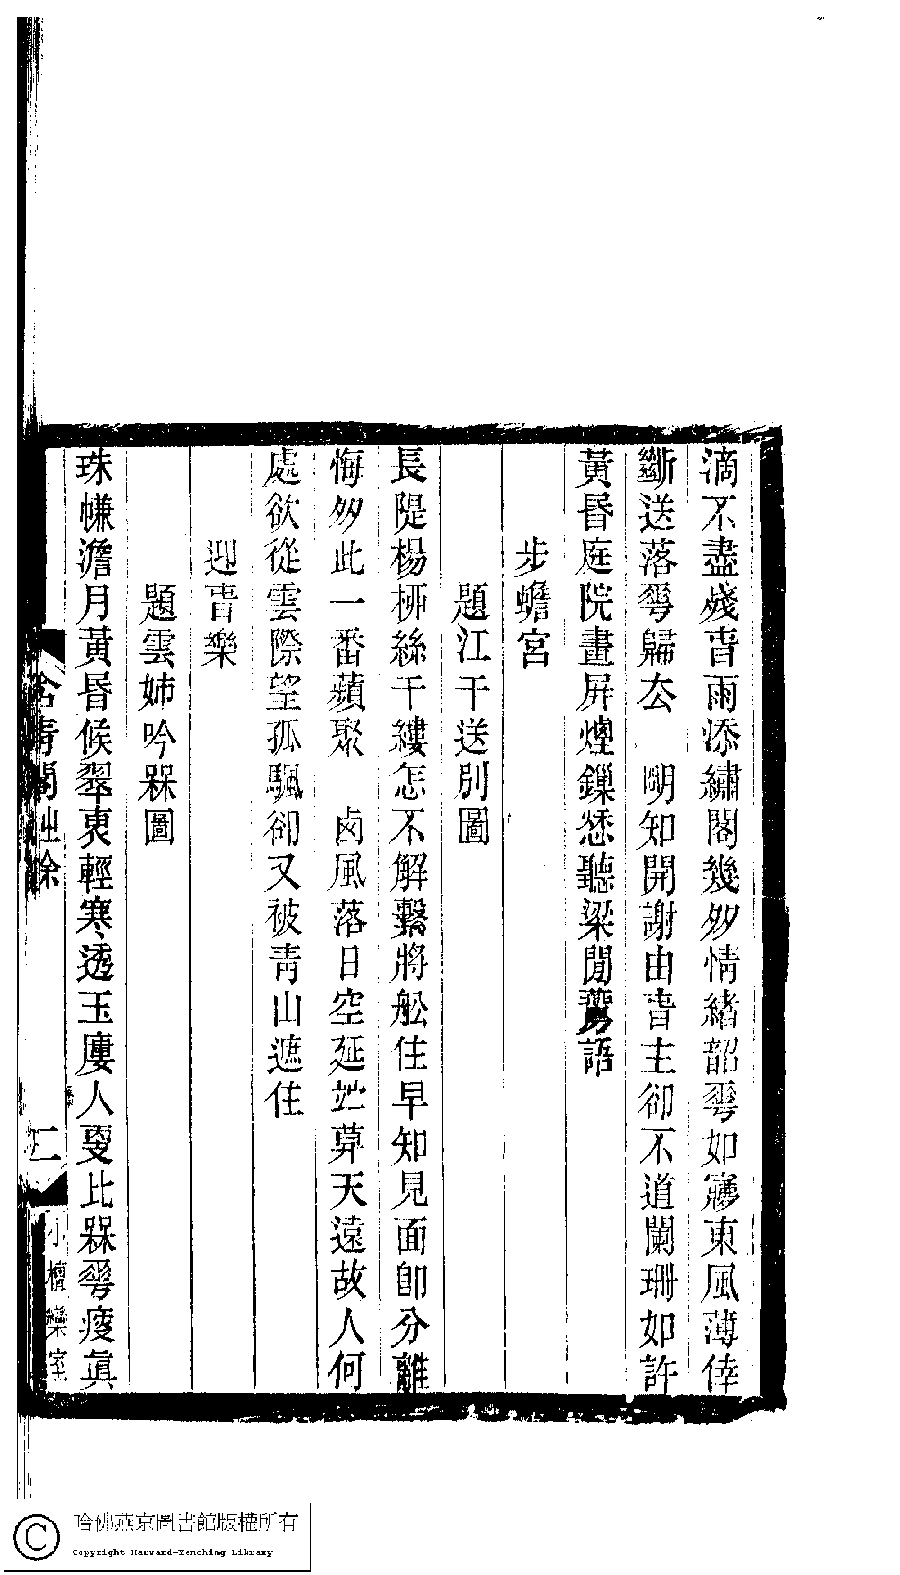 滴不盡殘旾雨添繡閣幾多情緒韶蕐如寢東風薄倖
斷送落蕐歸厺　朙知開謝由旾主卻不道闌珊如許
黃昏庭院畫屏煙鏁愁聽梁閒鷰語
步蟾宮
題江干送別圖
長隄楊桺絲千縷怎不解繫將舩住早知見面卽分離
悔多此一番蘋聚　鹵風落日空延竚算天遠故人何
處欲從雲際望孤颿卻又被靑山遮住
迎旾樂
題雲姊吟槑圖
珠㡘澹月黃昏候翠褏輕寒透玉廔人㪅比槑蕐瘦眞
含靑閣詩餘
二
小檀欒室
哈佛燕京圖書館版權所有
Copyright Harvard-Yenching Library